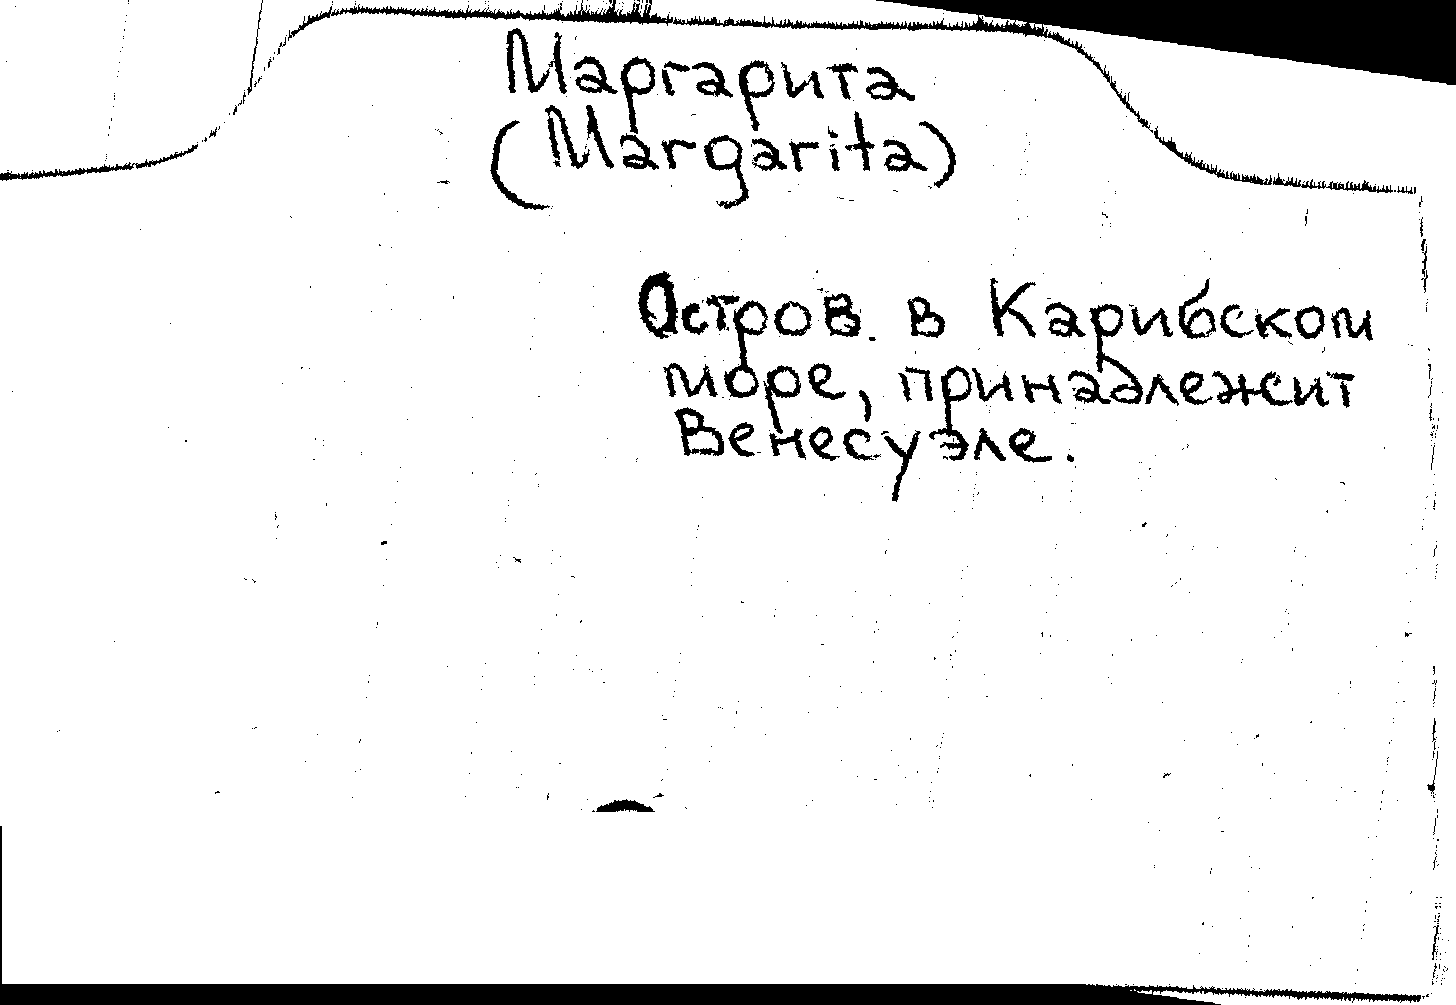 Маргарита
(Margarita)
Остров. в Карибском
море, принадлежит
Венесуэле.